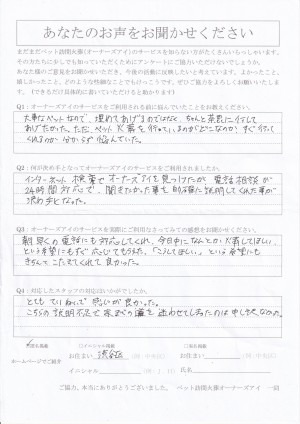 あなたのお声をお聞かせください
まだまだペット訪問火葬(オーナーズアイ)のサービスを知らない方がたくさんいらっしゃいます。
その方たちに少しでも知っていただくためにアンケートにご協力いただけないでしょうか。
あなた様のご意見をお聞かせいただき、今後の活動に反映したいと考えています。よかったこと、
嬉しかったこと、どのような些細なことでもけっこうです。ぜひご協力をよろしくお願いいたします。
(できるだけ具体的に書いていただけるとうれしいです)
Q1:オーナーズアイのサービスをご利用される前に悩んでいたことをお教えください。
大事なペットなので、埋めてあげるのではなく、ちゃんと葬儀に行して
あげたかった。ただ、ペット火葬を行っているのがどこなのか、すぐ行って
くれるのか分からず悩んでいた。
Q2:何が決め手となってオーナーズアイのサービスをご利用されましたか。
インターネット検索でオーナーズアイを見つけたが、電話相談が
24時間対応で、聞きたかった事を的確に説明してくれた事が
決め手となった。
Q3:オーナーズアイのサービスを実際にご利用なさっての感想をお聞かせください。
朝早くの電話にも対応してくれ、今日中になんとか火葬してほしい
という希望にもすぐに応じてもらえた。「こうしてほしい」という希望にも
きちんとこたえてくれて良かった。
Q4:対応したスタッフの対応はいかがでしたか。
とてもていねいで感じが良かった。
こちらの説明不足で家までの道を迷わせてしまったのは申し訳なかった。
□匿名掲載 □イニシャル掲載 □実名掲載
ホームページでご紹介 お住まい 渋谷区 お住まい
イニシャル お名前
ご協力、本当にありがとうございました。 ペット訪問火葬オーナーズアイ 一同